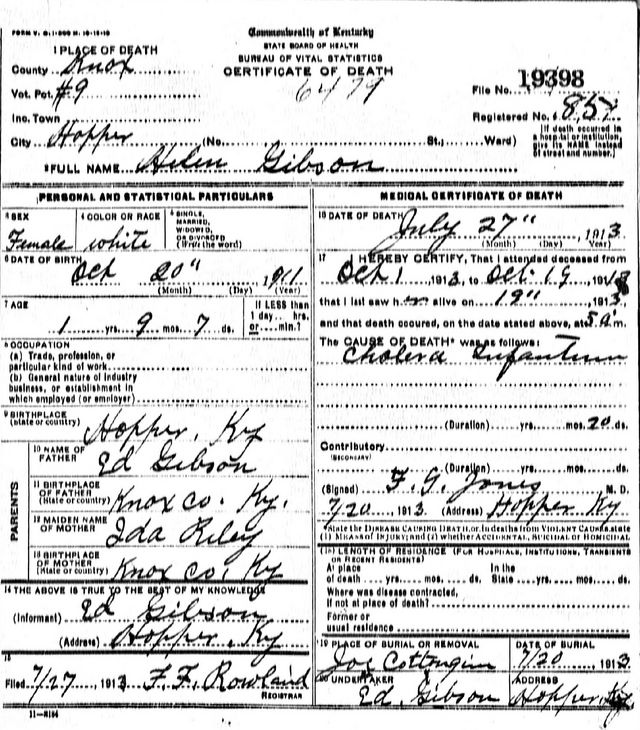 FORM V. S. 1-200 M. 10-15-10
Commonwealth of Kentucky
STATE BOARD OF HEALTH
BUREAU OF VITAL STATISTICS
CERTIFICATE OF DEATH
1 PLACE OF DEATH
County Knox
Vot. Pct. #9
Inc. Town
City Hopper (No. St.; Ward)
6479
File No. 19398
Registered No. 857
[If death occurred in a hospital or institution, give its NAME instead of street and number.]
2 FULL NAME Helen Gibson
PERSONAL AND STATISTICAL PARTICULARS
3 SEX
Female
4 COLOR OR RACE
white
5 SINGLE, MARRIED, WIDOWED OR DIVORCED (Write the word)
6 DATE OF BIRTH
Oct 20" 1911
(Month) (Day) (Year)
7 AGE
1 yrs. 9 mos. 7 ds.
If LESS than 1 day... hrs. or... min.?
8 OCCUPATION
(a) Trade, profession, or
particular kind of work
(b) General nature of industry
business, or establishment in
which employed (or employer)
9 BIRTHPLACE
(State or country) Hopper, Ky
PARENTS
10 NAME OF FATHER Ed Gibson
11 BIRTHPLACE OF FATHER (State or country) Knox co. Ky.
12 MAIDEN NAME OF MOTHER Ida Riley
13 BIRTHPLACE OF MOTHER (State or country) Knox co. Ky
14 THE ABOVE IS TRUE TO THE BEST OF MY KNOWLEDGE
(Informant) Ed Gibson
(Address) Hopper, Ky
15
Filed 7/27, 1913 F. F. Rowland
REGISTRAR
11-8184
MEDICAL CERTIFICATE OF DEATH
16 DATE OF DEATH July 27" 1913
(Month) (Day) (Year)
17 I HEREBY CERTIFY, That I attended deceased from
Oct 1 1913, to Oct 19, 191
that I last saw h alive on 19" 1913,
and that death occured, on the date stated above, at 5 a m.
The CAUSE OF DEATH* was as follows:
Cholera Infantum
(Duration) yrs. mos. 20 ds.
Contributory
(SECONDARY)
(Duration) yrs. mos. ds.
(Signed) F. G. Jones M. D.
7/20 1913 (Address) Hopper Ky
*State the DISEASE CAUSING DEATH, or, in deaths from VIOLENT CAUSES, state
(1) MEANS of INJURY; and (2) whether ACCIDENTAL, SUICIDAL or HOMICIDAL
18 LENGTH OF RESIDENCE (FOR HOSPITALS, INSTITUTIONS, TRANSIENTS OR RECENT RESIDENTS)
At place of death yrs. mos. ds. In the State yrs. mos. ds.
Where was disease contracted,
If not at place of death?
Former or
usual residence
19 PLACE OF BURIAL OR REMOVAL
Joe Cottongim
DATE OF BURIAL
7/20 1913
20 UNDERTAKER
Ed. Gibson
ADDRESS
Hopper, Ky